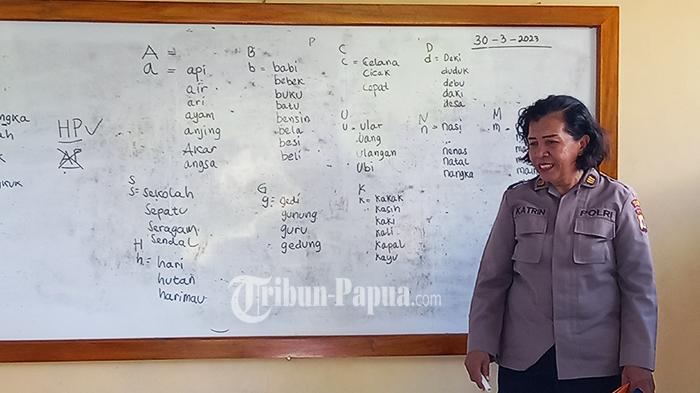 30-3-2023
A =
a = api
air
ari
ayam
anjing
Akar
angsa
B
b = babi
bebek
buku
batu
bensin
bela
besi
beli
P
C
c = Celana
Cicak
Cepat
D
d = Deki
duduk
debu
daki
desa
U
u = ular
Uang
ulangan
Ubi
N
n = nasi
nenas
natal
nangka
M
m =
HPV
S
s = sekolah
Sepatu
Seragam
Sendal
H
h = hari
hutan
harimau
G
g = gedi
gunung
guru
gedung
K
k = kakak
kasih
kaki
kali
kapal
kayu
KATRIN
POLRI
Tribun-Papua.com